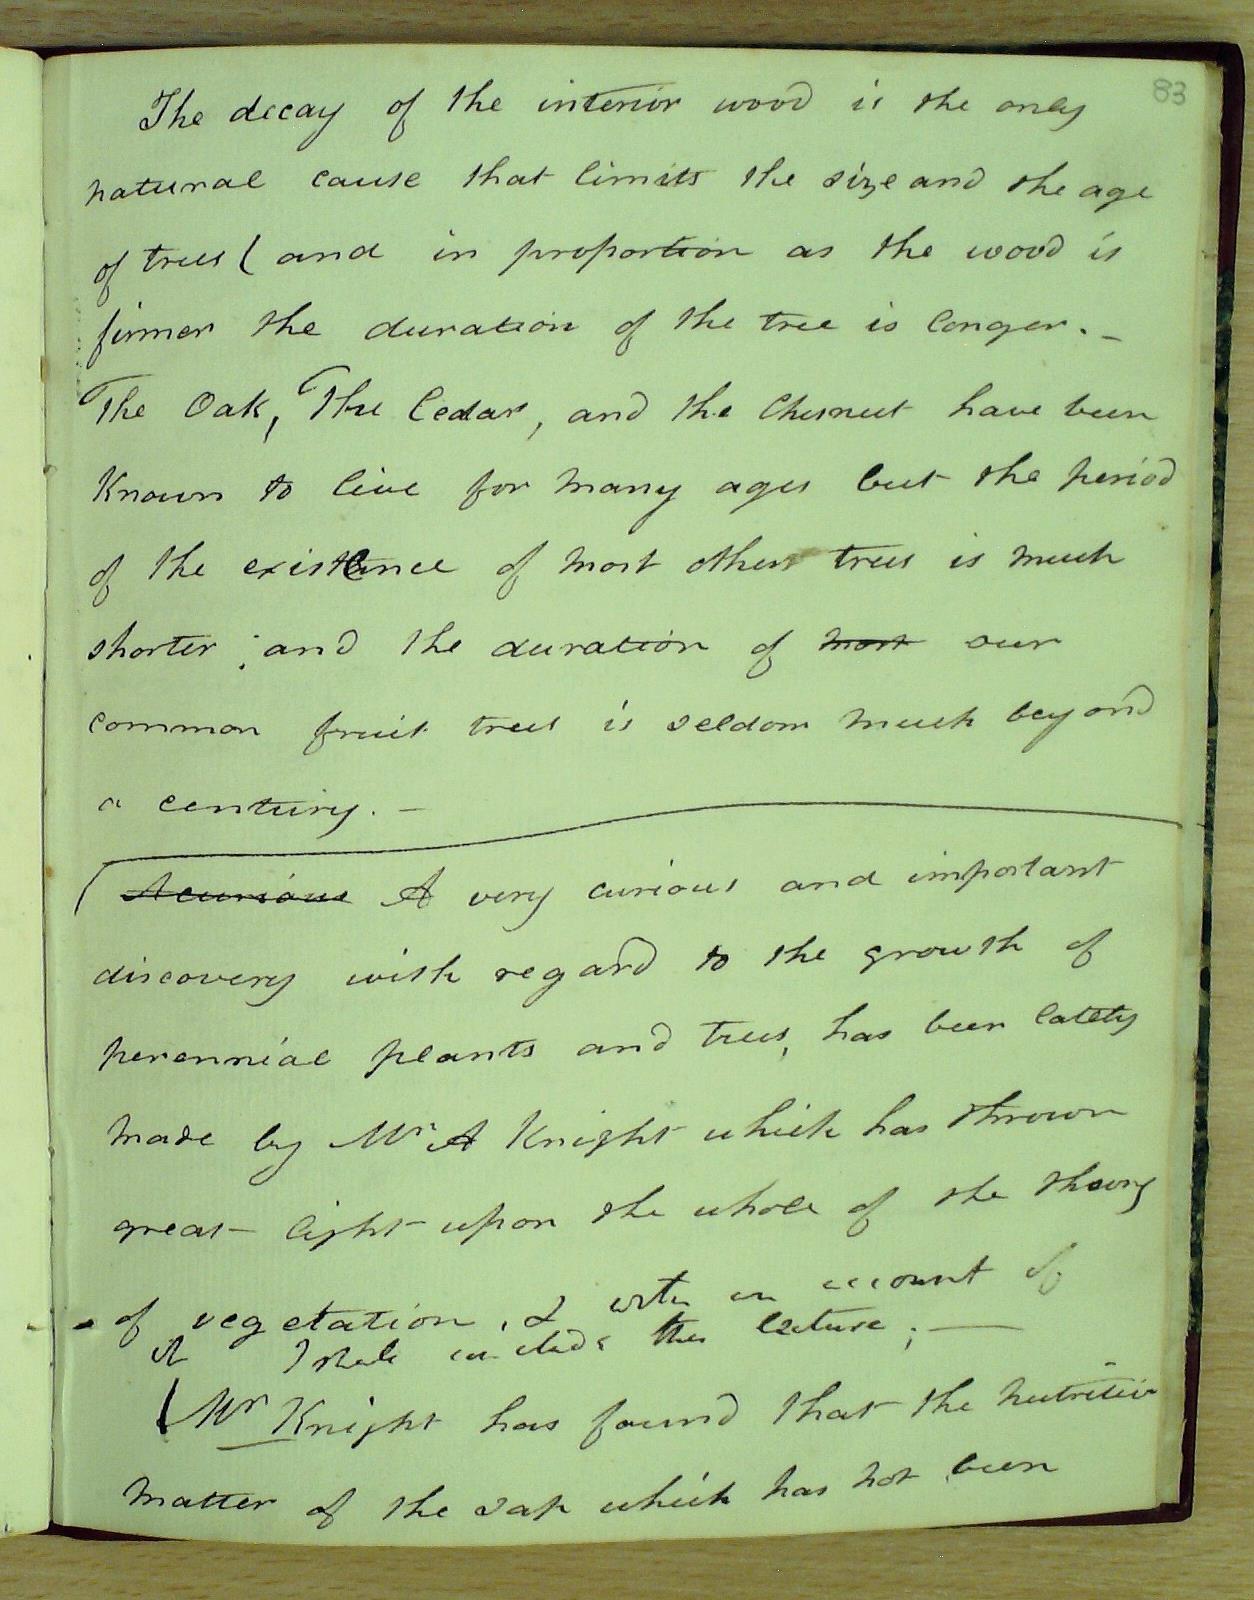 83
The decay of the interior wood is the only
natural cause that limits the size and the age
of trees ( and in proportion as the wood is
firmer the duration of the tree is longer. –
The Oak, The Cedar, and the Chesnut have been
Known to live for many ages but the period
of the existence of most other trees is much
shorter ; and the duration of most our
common fruit trees is seldom much beyond
a century. –
( A curious A very curious and important
discovery with regard to the growth of
perennial plants and trees, has been lately
made by Mr A Knight which has thrown
great light upon the whole of the theory
- of vegetation, & with an account of
it I shall conclude this lecture ; —
( Mr Knight has found that the nutritive
matter of the sap which has not been